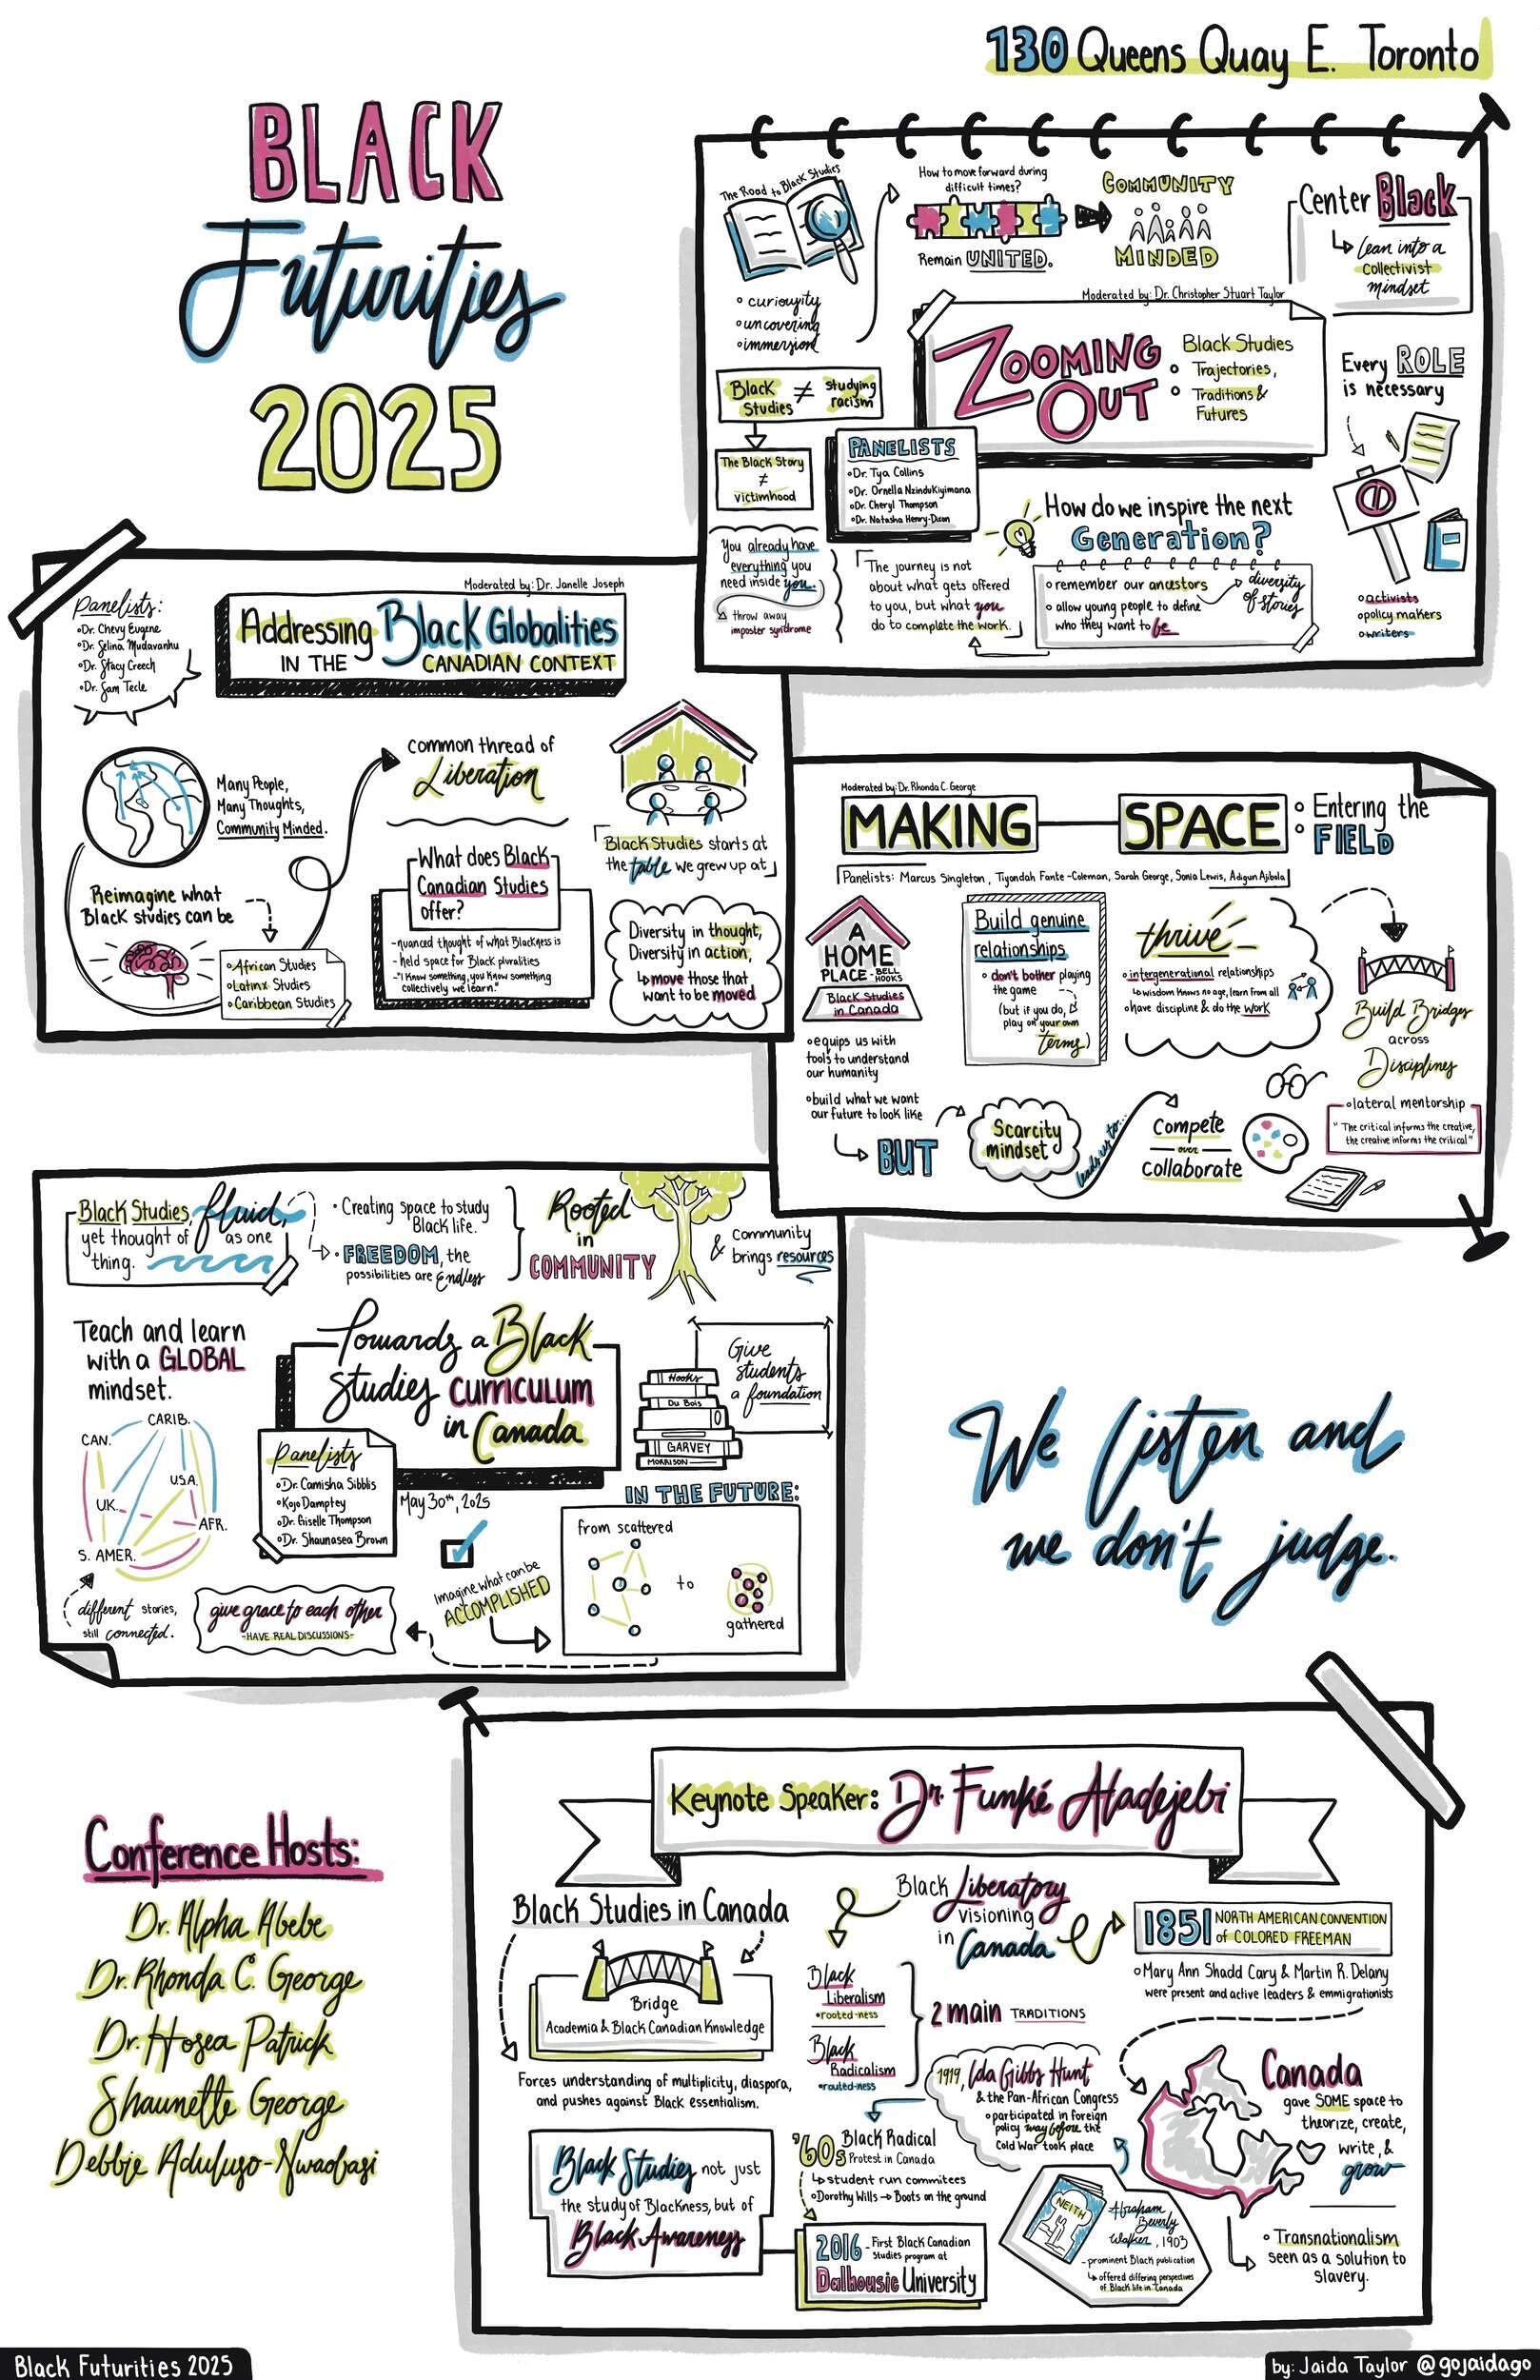 130 Queens Quay E. Toronto
BLACK
Futurities
2025
The Road to Black Studies
• curiousity
• uncovering
• immersion
How to move forward during
difficult times?
Remain UNITED.
COMMUNITY
MINDED
Center Black
Lean into a
collectivist
mindset
Moderated by: Dr. Christopher Stuart Taylor
ZOOMING
OUT
Black Studies
Trajectories,
Traditions &
Futures
Every ROLE
is necessary
• activists
• policy makers
• writers
Black
Studies
≠
studying
racism
The Black Story
≠
victimhood
PANELISTS
• Dr. Tya Collins
• Dr. Ornella Nzindukiyimana
• Dr. Cheryl Thompson
• Dr. Natasha Henry-Dixon
You already have
everything you
need inside you.
throw away
imposter syndrome
The journey is not
about what gets offered
to you, but what you
do to complete the work.
How do we inspire the next
Generation?
• remember our ancestors
diversity
of stories
• allow young people to define
who they want to be
Panelists:
• Dr. Chevy Eugene
• Dr. Selina Mudavanhu
• Dr. Stacy Creech
• Dr. Sam Tecle
Moderated by: Dr. Janelle Joseph
Addressing Black Globalities
IN THE CANADIAN CONTEXT
Many People,
Many Thoughts,
Community Minded.
Reimagine what
Black studies can be
• African Studies
• Latinx Studies
• Caribbean Studies
common thread of
Liberation
What does Black
Canadian Studies
offer?
- nuanced thought of what Blackness is
- held space for Black pluralities
- "I know something, you know something
collectively we learn."
Black Studies starts at
the table we grew up at
Diversity in thought,
Diversity in action,
move those that
want to be moved
Moderated by: Dr. Rhonda C. George
MAKING SPACE: Entering the
FIELD
Panelists: Marcus Singleton, Tiyondah Fante-Coleman, Sarah George, Sonia Lewis, Adigun Ajibola
A
HOME
PLACE - BELL
HOOKS
Black Studies
in Canada
• equips us with
tools to understand
our humanity
• build what we want
our future to look like
BUT
Build genuine
relationships
• don't bother playing
the game
(but if you do,
play on your own
terms)
thrive
• intergenerational relationships
wisdom knows no age, learn from all
• have discipline & do the work
Build Bridges
across
Disciplines
• lateral mentorship
"The critical informs the creative,
the creative informs the critical"
Scarcity
mindset
leads us to...
Compete
over
collaborate
Black Studies, fluid,
yet thought of as one
thing.
• Creating space to study
Black life.
• FREEDOM, the
possibilities are Endless
Rooted
in
COMMUNITY
& Community
brings resources
Teach and learn
with a GLOBAL
mindset.
CARIB.
CAN.
U.S.A.
U.K.
AFR.
S. AMER.
different stories,
still connected.
Towards a Black
Studies curriculum
in Canada
Panelists
• Dr. Camisha Sibblis
• Kojo Damptey
• Dr. Giselle Thompson
• Dr. Shaunasea Brown
May 30th, 2025
Hooks
Du Bois
GARVEY
MORRISON
Give
students
a foundation
give grace to each other
- HAVE REAL DISCUSSIONS -
Imagine what can be
ACCOMPLISHED
IN THE FUTURE:
from scattered
to
gathered
We listen and
we don't judge.
Conference Hosts:
Dr. Alpha Abebe
Dr. Rhonda C. George
Dr. Hosea Patrick
Shaunette George
Debbie Aduluso-Nwaobasi
Keynote Speaker: Dr. Funké Aladejebi
Black Studies in Canada
Bridge
Academia & Black Canadian Knowledge
Forces understanding of multiplicity, diaspora,
and pushes against Black essentialism.
Black Studies not just
the study of Blackness, but of
Black Awareness
Black Liberatory
visioning
in Canada
Black
Liberalism
• rooted-ness
Black
Radicalism
• routed-ness
2 main TRADITIONS
1851 NORTH AMERICAN CONVENTION
of COLORED FREEMAN
• Mary Ann Shadd Cary & Martin R. Delany
were present and active leaders & emmigrationists
1919, Ida Gibbs Hunt
& the Pan-African Congress
• participated in foreign
policy way before the
Cold War took place
'60s Black Radical
Protest in Canada
student run commitees
• Dorothy Wills → Boots on the ground
2016 - First Black Canadian
Studies program at
Dalhousie University
NEITH
Abraham
Beverly
Walker, 1903
- prominent Black publication
offered differing perspectives
of Black life in Canada
Canada
gave SOME space to
theorize, create,
write, &
grow
• Transnationalism
seen as a solution to
slavery.
Black Futurities 2025
by: Jaida Taylor @gojaidago